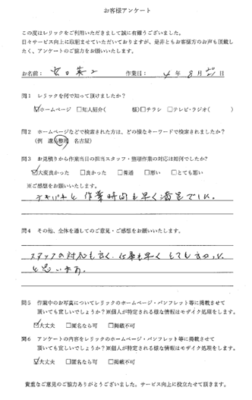 お客様アンケート
この度はレリックをご利用いただきまして誠に有難うございました。
日々サービス向上に役立てさせていただいておりますが、是非ともお客様方のお声も頂戴し
たく、アンケートのご協力をお願いいたします。
お名前: 作業日: 年 8 月 日
問1 レリックを何で知って頂けましたか?
☑ホームページ □知人紹介( 様)□チラシ □テレビ・ラジオ( )
問2 ホームページなどで検索された方は、どの様なキーワードで検索されましたか?
(例 遺品整理 名古屋)
問3 お見積りから作業当日の担当スタッフ・整理作業の対応は如何でしたか?
☑大変良かった □良かった □普通 □悪い □とても悪い
※ご感想をお願いいたします。
テキパキと作業時間も早く満足でした。
問4 その他、全体を通してのご意見・ご感想をお願いいたします。
スタッフの対応も良く、仕事も早く
と思います。
問5 作業中のお写真についてレリックのホームページ・パンフレット等に掲載させて
頂いても宜しいでしょうか?※個人が特定される様な情報はモザイク処理をします。
☑大丈夫 □匿名なら可 □掲載不可
問6 アンケートの内容をレリックのホームページ・パンフレット等に掲載させて
頂いても宜しいでしょうか?※個人が特定される様な情報はモザイク処理をします。
☑大丈夫 □匿名なら可 □掲載不可
貴重なご意見のご協力ありがとうございました。サービス向上に役立たせて頂きます。